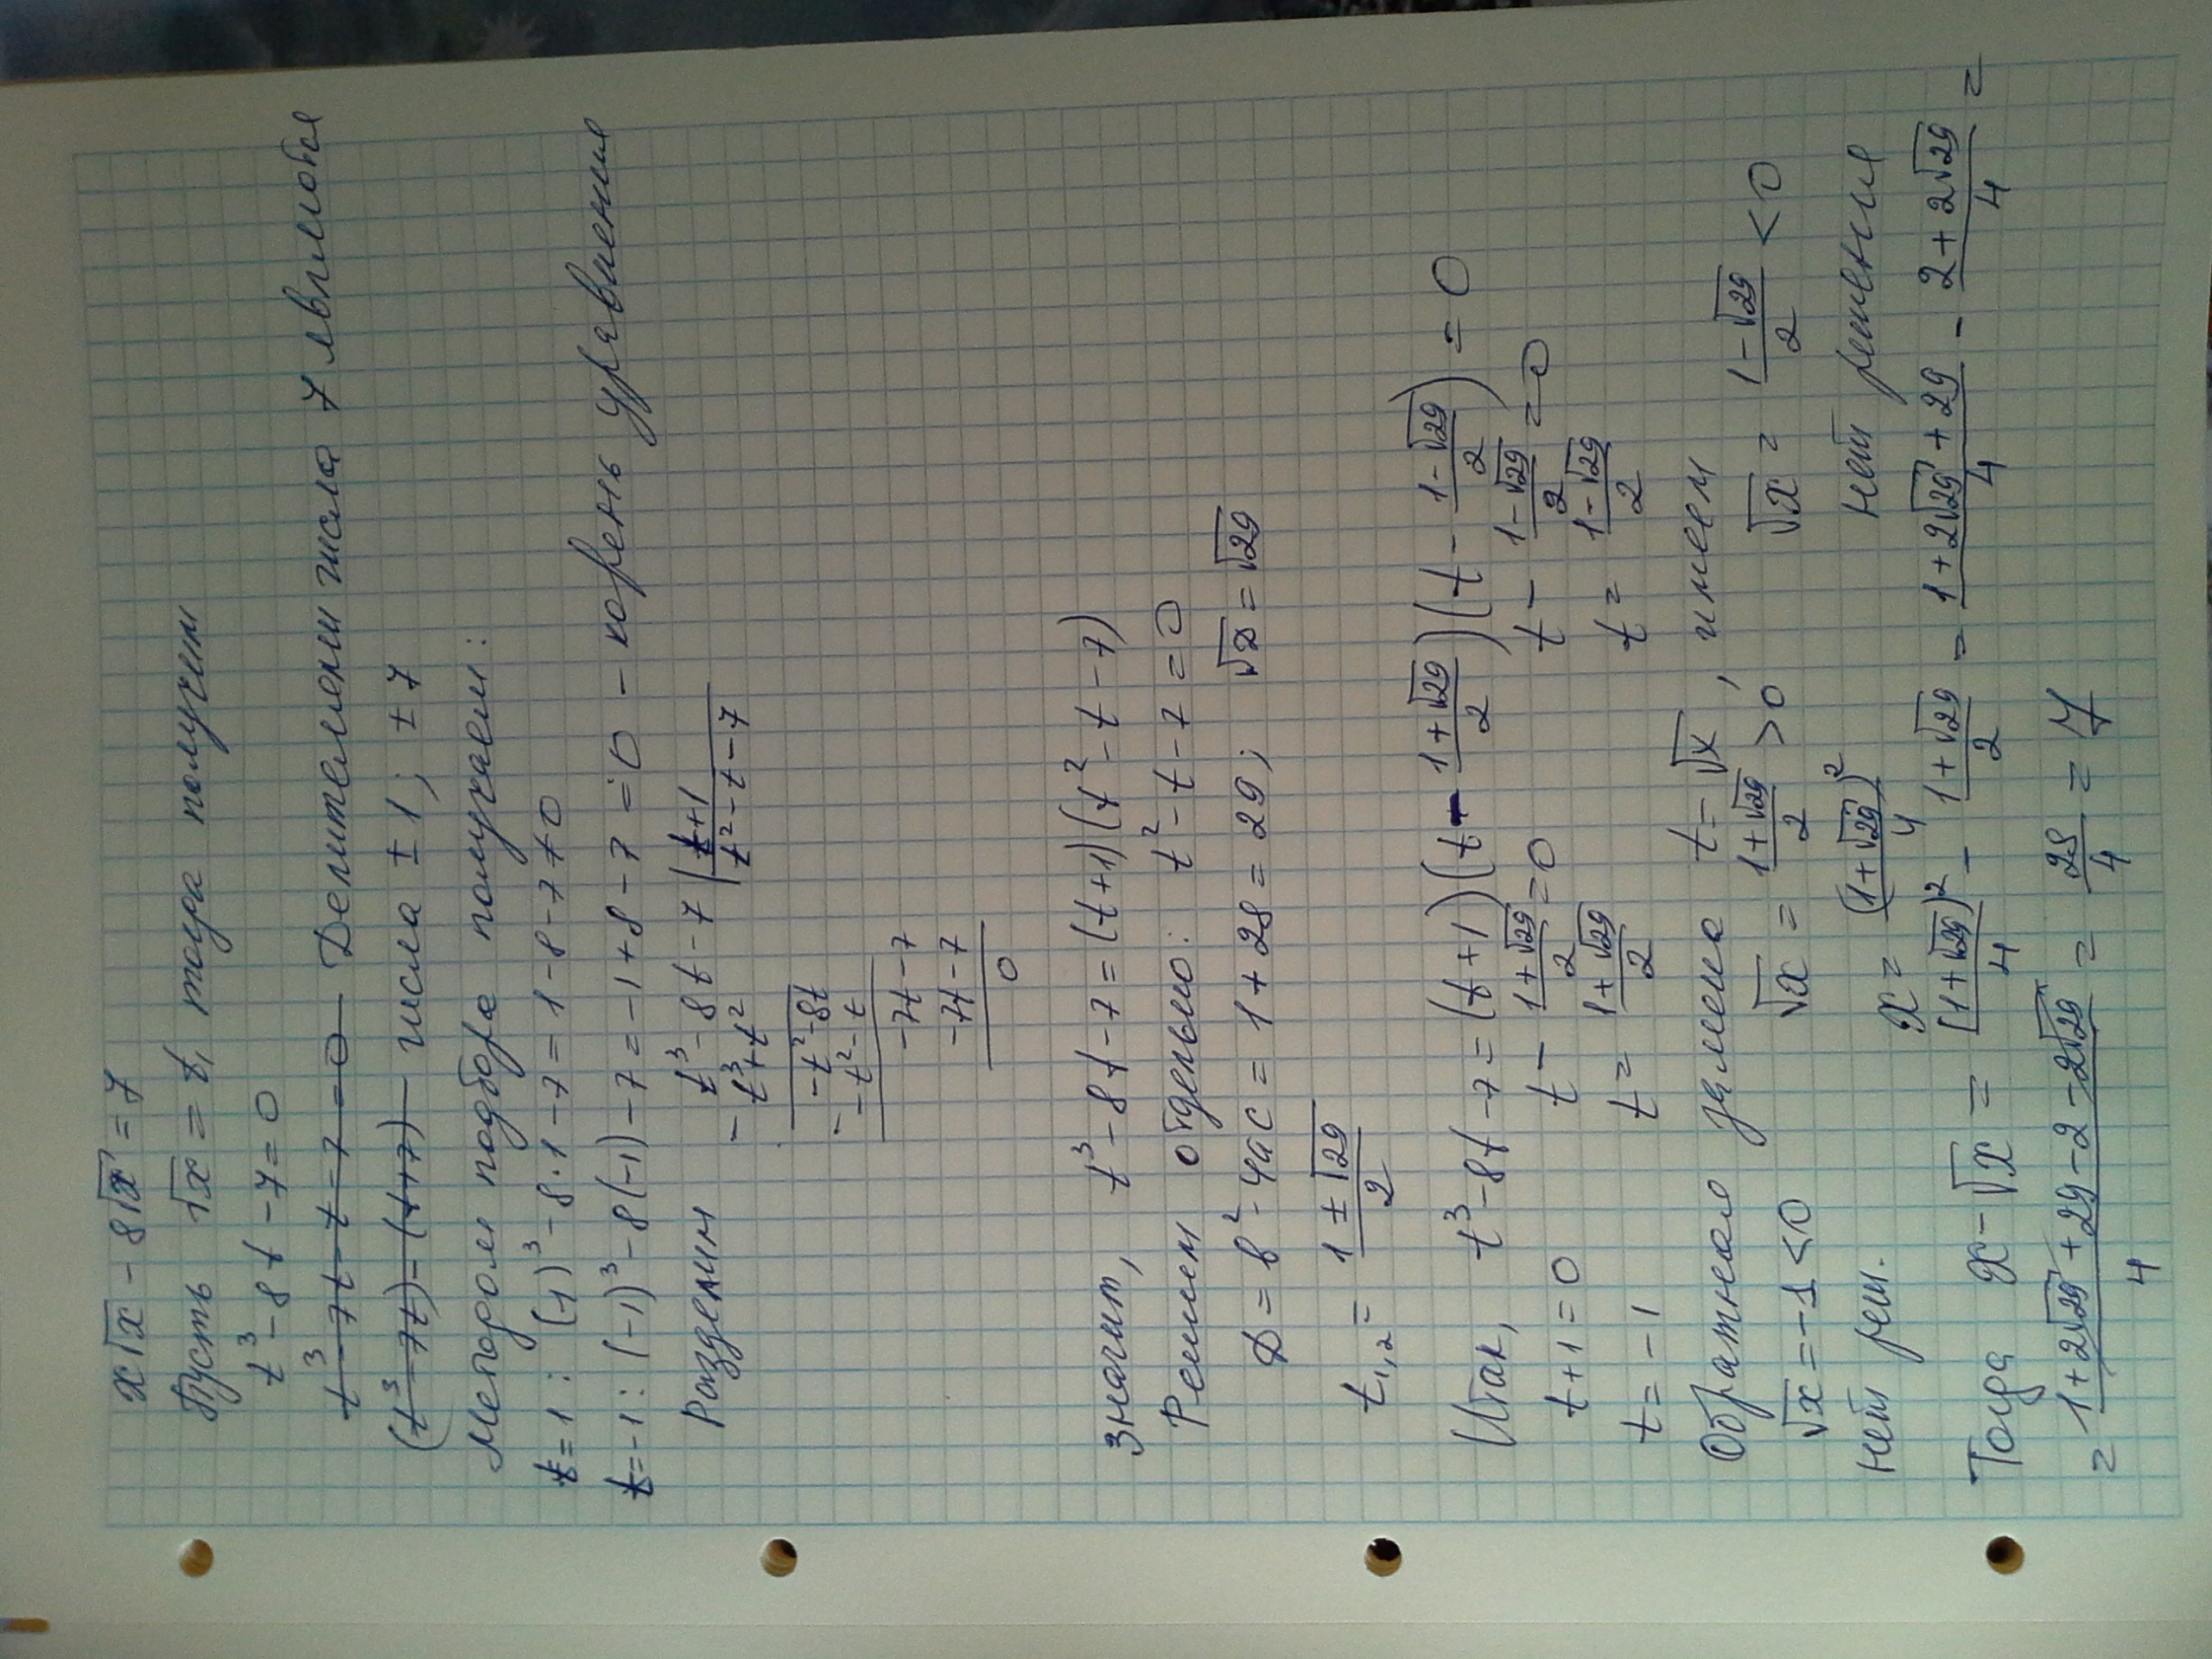 x√x - 8√x = 7
Пусть √x = t, тогда получим
t³ - 8t - 7 = 0
t³ - 7t - t - 7 = 0 Делителями числа 7 являются
(t³ - 7t) - (t + 7) числа ± 1; ± 7
Методом подбора получаем:
t = 1: (1)³ - 8·1 - 7 = 1 - 8 - 7 ≠ 0
t = -1: (-1)³ - 8(-1) - 7 = -1 + 8 - 7 = 0 - корень уравнения
Разделим t³ - 8t - 7 | t + 1
- t³ + t² | t² - t - 7
-t² - 8t
- -t² - t
-7t - 7
-7t - 7
0
Значит, t³ - 8t - 7 = (t + 1)(t² - t - 7)
Решим отдельно: t² - t - 7 = 0
D = b² - 4ac = 1 + 28 = 29; √D = √29
t₁,₂ = (1 ± √29)/2
Итак, t³ - 8t - 7 = (t + 1)(t - (1 + √29)/2)(t - (1 - √29)/2) = 0
t + 1 = 0 t - (1 + √29)/2 = 0 t - (1 - √29)/2 = 0
t = -1 t = (1 + √29)/2 t = (1 - √29)/2
Обратная замена t = √x, имеем
√x = -1 < 0 √x = (1 + √29)/2 > 0 √x = (1 - √29)/2 < 0
нет реш. x = (1 + √29)²/4 нет решения
Тогда x - √x = (1 + √29)²/4 - (1 + √29)/2 = (1 + 2√29 + 29)/4 - (2 + 2√29)/4 =
= (1 + 2√29 + 29 - 2 - 2√29)/4 = 28/4 = 7